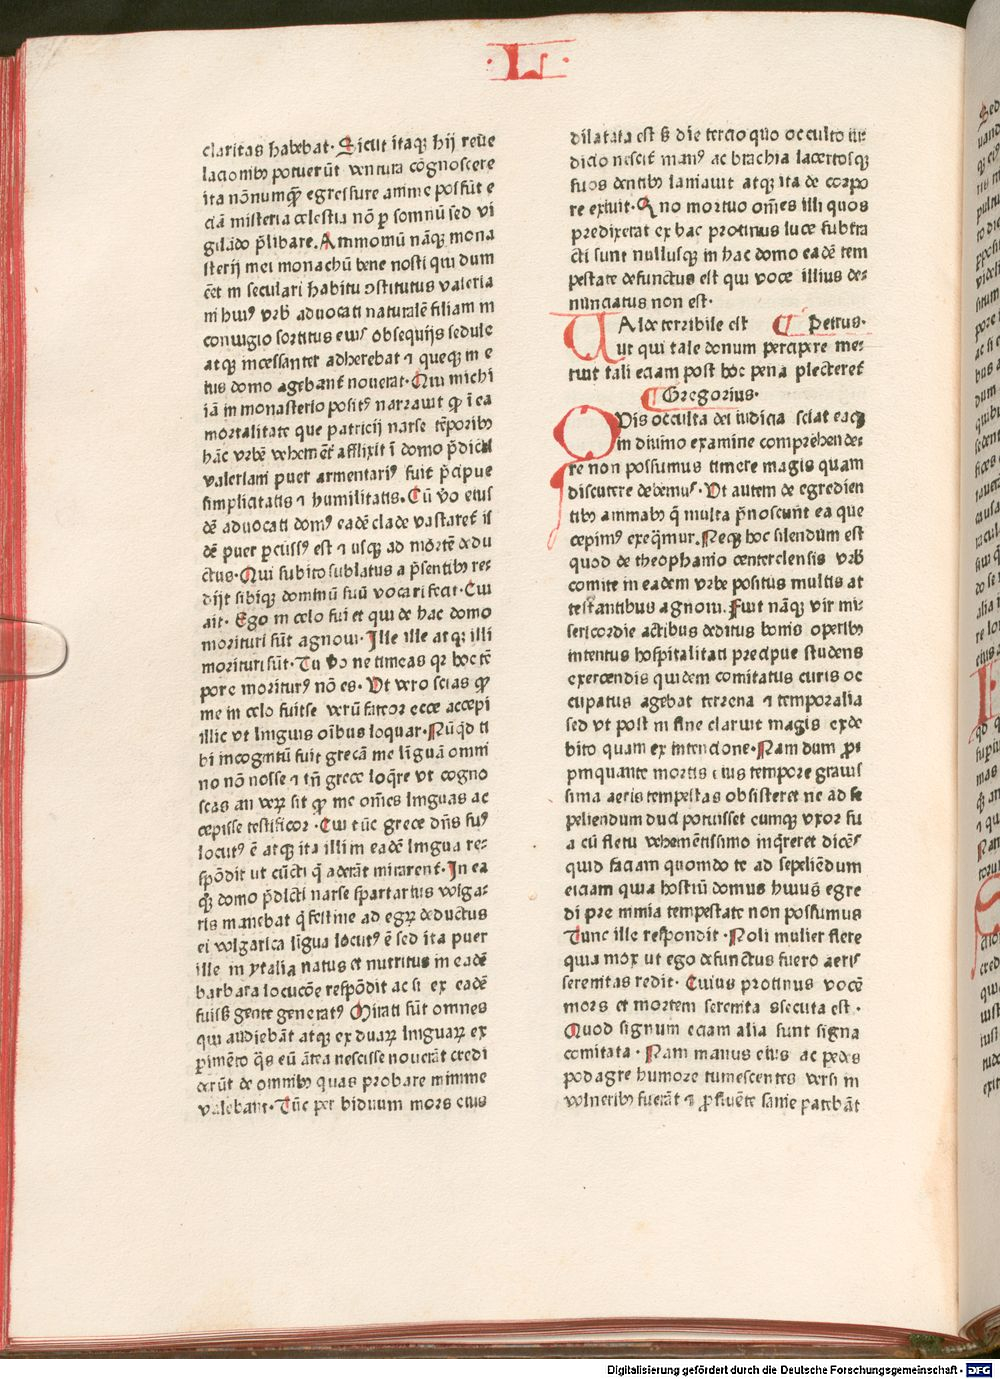 L
claritas habebat. Sicut itaqꝫ hij reue
lacionibꝫ potuerūt ventura cōgnoscere
ita nōnumqȝ egressure anime possūt e
ciā misteria celestia nō ꝑ somnū sed vi
gilādo p̄libare. Ammomū nāqꝫ mona
sterij mei monachū bene nosti qui dum
cēt in seculari habitu ↄstitutus valeria
ni huiꝰ vrb̄ aduocati naturalē filiam in
coniugio sortitus eiuꝰ obsequijs sedule
atqꝫ incessanter adherebat ⁊ queqꝫ in e
ius domo agebant̄ nouerat. Qui michi
iā in monasterio positꝰ narrauit ꝙ ī ea
mortalitate que patricij narse tēporibꝫ
hāc vrbē vehement̄ afflixit ī domo p̄dicti
valeriani puer armentariꝰ fuit p̄cipue
simplicitatis ⁊ humilitatis. Cū ṽo eius
dē aduocati domꝰ eadē clade vastaret̄ is
dē puer ꝑcussꝰ est ⁊ usqꝫ ad mortē dedu
ctus. Qui subito sublatus a p̄sentibꝫ re-
dijt sibiqꝫ dominū suū vocari fecit. Cui
ait. Ego in celo fui et qui de hac domo
morituri sūt agnoui. Ille ille atqꝫ illi
morituri sūt. Tu ṽo ne timeas qꝛ hoc tē
pore moriturꝰ nō es. Vt vero scias ꝙ
me in celo fuisse verū fateor ecce accepi
illic vt linguis oībus loquar. Nūqͥd ti
bi incognitū fuit grecā me liguā omni
no nō nosse ⁊ tn̄ grece loqͥre vt cogno
scas an veꝝ sit ꝙ me om̄es linguas ac
cepisse testificor. Cui tūc grece dn̄s suꝰ
locutꝰ ē atqꝫ ita illi in eadē lingua re-
spōdit ut cūcti q̄ aderāt mirarent̄. In ea
qꝫ domo p̄dicti narse spartarius vulga-
ris manebat q̄ festine ad egꝝ deductus
ei vulgarica ligua locutꝰ ē sed ita puer
ille in ytalia natus et nutritus in eadē
barbara locucōe respōdit ac si ex eadē
fuisȝ gente generatꝰ Mirati sūt omnes
qui audiebāt atqꝫ ex duaꝝ linguaꝝ ex
ꝑimēto qͣs eū ātea nescisse nouerāt credi
derūt de omnibꝫ quas probare minime
valebant. Tūc per biduum mors eius
dilatata est s̄ die tercio quo occulto iu-
dicio nescit̄ manꝰ ac brachia lacertosqꝫ
suos dentibꝫ laniauit atqꝫ ita de corpo
re exiuit. Qno mortuo om̄es illi quos
predixerat ex hac protinus luce subtra
cti sunt nullusqꝫ in hac domo eadē tem
pestate defunctus est qui voce illius de-
nunciatus non est.
Valde terribile est ¶ Petrus.
ut qui tale donum percipere me-
ruit tali eciam post hoc pena plecteret̄
¶ Gregorius.
Qvis occulta dei iudicia sciat eaqꝫ
in diuino examine comprehende-
re non possumus timere magis quam
discutere debemuꝰ. Vt autem de egredien
tibꝫ animabꝫ q̄ multa p̄noscunt ea que
cepimꝰ exeq̄mur. Neqꝫ hoc silendum est
quod de theophanio centerclensis vrb̄
comite in eadem vrbe positus multis at
testantibus agnoui. Fuit nāqꝫ vir mi-
sericordie actibus deditus bonis operibꝫ
intentus hospitalitati precipue studens
exercendis quidem comitatus curis oc
cupatus agebat terrena ⁊ temporalia
sed vt post in fine claruit magis ex de
bito quam ex intencione. Nam dum ꝓ
pinquante mortis eius tempore grauis
sima aeris tempestas obsisteret ne ad se
peliendum duci potuisset eumqꝫ vxor su
a cū fletu vehemētissimo inq̄reret dicēs
quid faciam quomodo te ad sepeliēdum
eiciam quia hostiū domus huius egre
di pre nimia tempestate non possumus
Tunc ille respondit. Noli mulier flere
quia mox ut ego defunctus fuero aeris
serenitas redit. Cuius protinus vocē
mors et mortem serenita ssecuta est.
Quod signum eciam alia sunt signa
comitata. Nam manus eius ac pedes
podagre humore tumescentes versi in
vulneribꝫ fuerāt ⁊ ꝓfluēte sanie patebāt
Digitalisierung gefördert durch die Deutsche Forschungsgemeinschaft - DFG